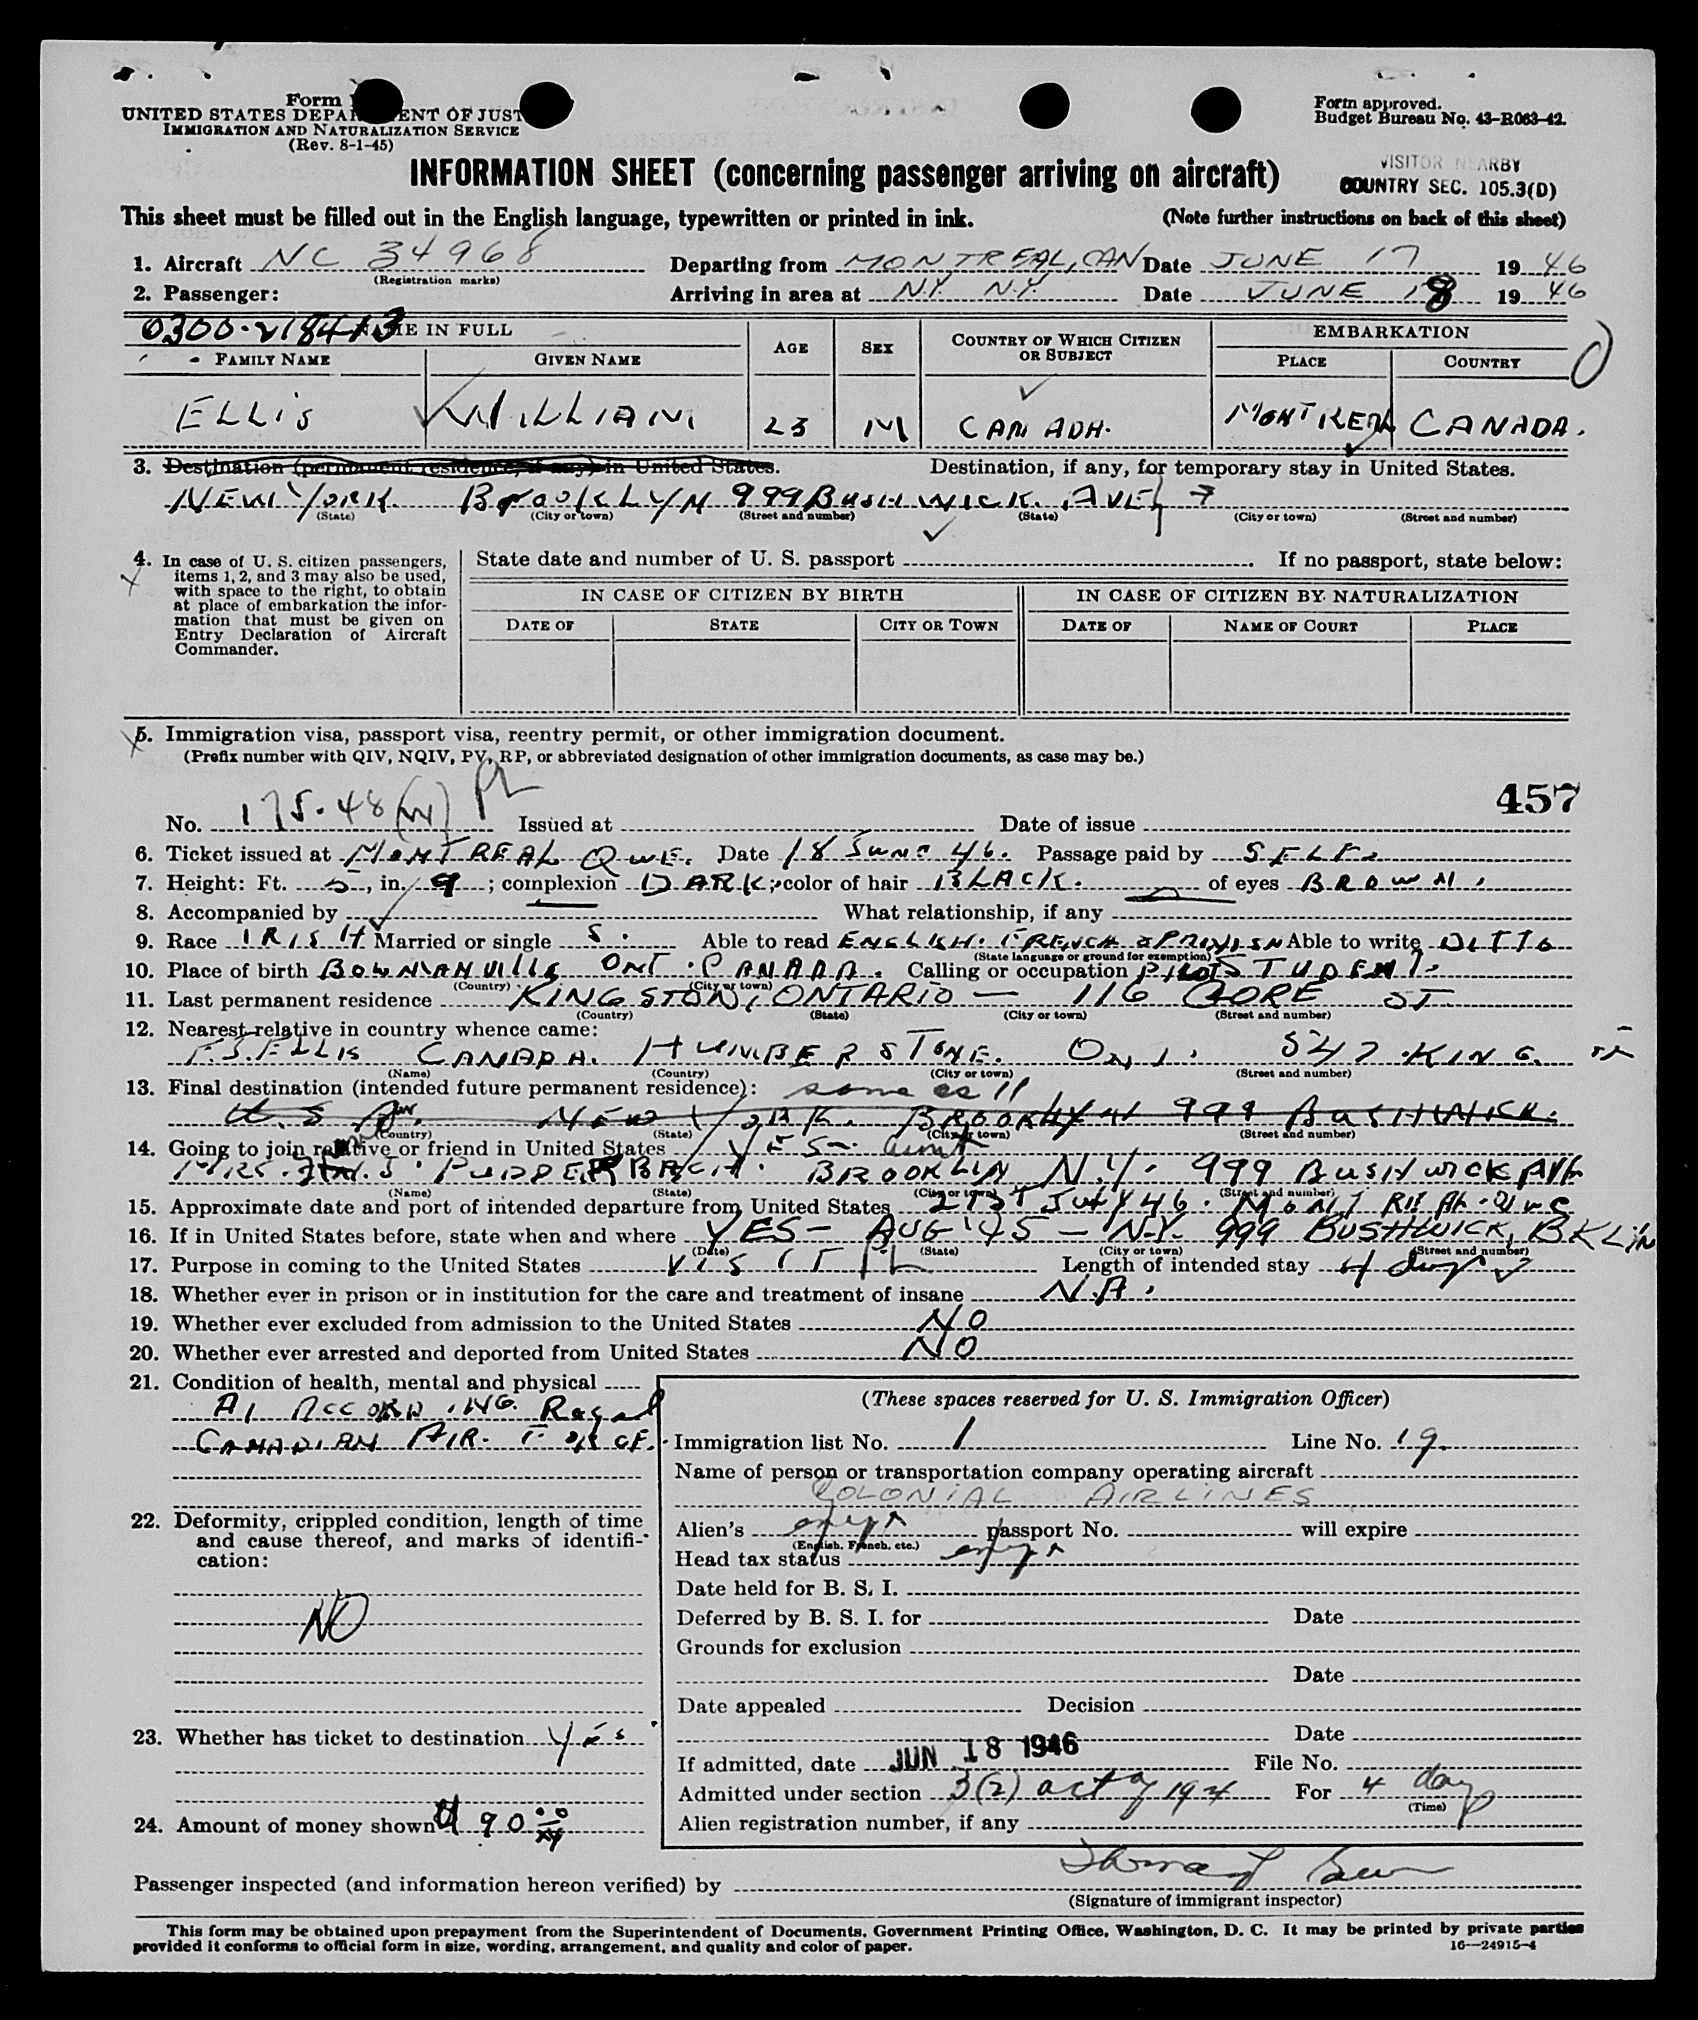 Form
UNITED STATES DEPARTMENT OF JUST
IMMIGRATION AND NATURALIZATION SERVICE
(Rev. 8-1-45)
Form approved.
Budget Bureau No. 43-R063-42.
INFORMATION SHEET (concerning passenger arriving on aircraft)
VISITOR NEARBY
COUNTRY SEC. 105.3(D)
This sheet must be filled out in the English language, typewritten or printed in ink. (Note further instructions on back of this sheet)
1. Aircraft NC 34968 Departing from MONTREAL, CAN Date JUNE 17 1946
(Registration marks)
2. Passenger: Arriving in area at N.Y. N.Y. Date JUNE 18 1946
0300-218413 NAME IN FULL AGE SEX COUNTRY OF WHICH CITIZEN OR SUBJECT EMBARKATION
FAMILY NAME GIVEN NAME PLACE COUNTRY
ELLIS WILLIAM 23 M CANADA. MONTREAL CANADA.
3. Destination (permanent residence, if any) in United States. Destination, if any, for temporary stay in United States.
NEW YORK. BROOKLYN 999 BUSHWICK. AVE
(State) (City or town) (Street and number) (State) (City or town) (Street and number)
4. In case of U. S. citizen passengers, items 1, 2, and 3 may also be used, with space to the right, to obtain at place of embarkation the information that must be given on Entry Declaration of Aircraft Commander.
State date and number of U. S. passport . If no passport, state below:
IN CASE OF CITIZEN BY BIRTH IN CASE OF CITIZEN BY NATURALIZATION
DATE OF STATE CITY OR TOWN DATE OF NAME OF COURT PLACE
5. Immigration visa, passport visa, reentry permit, or other immigration document.
(Prefix number with QIV, NQIV, PV, RP, or abbreviated designation of other immigration documents, as case may be.)
457
No. 175.48 Issued at Date of issue
6. Ticket issued at MONTREAL QUE. Date 18 JUNE 46. Passage paid by SELF.
7. Height: Ft. 5, in. 9; complexion DARK; color of hair BLACK. of eyes BROWN.
8. Accompanied by What relationship, if any
9. Race IRISH Married or single S. Able to read ENGLISH. FRENCH & Able to write DITTO
(State language or ground for exemption)
10. Place of birth BOWMANVILLE ONT. CANADA. Calling or occupation STUDENT.
(Country) (City or town)
11. Last permanent residence KINGSTON, ONTARIO — 116 GORE ST.
(Country) (State) (City or town) (Street and number)
12. Nearest relative in country whence came:
ELLIS CANADA. HUMBERSTONE. ONT. 547 KING. ST
(Name) (Country) (City or town) (Street and number)
13. Final destination (intended future permanent residence): same as 11
U.S.A. NEW YORK. BROOKLYN 999 BUSHWICK.
(Country) (State) (City or town) (Street and number)
14. Going to join relative or friend in United States YES- aunt
MRS. J. BROOKLIN N.Y. 999 BUSHWICK AVE
(Name) (State) (City or town) (Street and number)
15. Approximate date and port of intended departure from United States 21ST JULY 46. MONTREAL. QUE
16. If in United States before, state when and where YES - AUG '45 - N.Y. 999 BUSHWICK, BKLIN
(Date) (State) (City or town) (Street and number)
17. Purpose in coming to the United States VISIT Length of intended stay 4 days
18. Whether ever in prison or in institution for the care and treatment of insane N.A.
19. Whether ever excluded from admission to the United States NO
20. Whether ever arrested and deported from United States NO
21. Condition of health, mental and physical
A1 ACCORDING. Royal
CANADIAN AIR. FORCE.
22. Deformity, crippled condition, length of time and cause thereof, and marks of identification:
NO
23. Whether has ticket to destination Yes
24. Amount of money shown 90
(These spaces reserved for U. S. Immigration Officer)
Immigration list No. 1 Line No. 19.
Name of person or transportation company operating aircraft
COLONIAL AIRLINES
Alien's exempt passport No. will expire
(English, French, etc.)
Head tax status exempt
Date held for B. S. I.
Deferred by B. S. I. for Date
Grounds for exclusion
Date
Date appealed Decision
Date
If admitted, date JUN 18 1946 File No.
Admitted under section 3(2) act of 1924 For 4 days
(Time)
Alien registration number, if any
Passenger inspected (and information hereon verified) by
(Signature of immigrant inspector)
This form may be obtained upon prepayment from the Superintendent of Documents, Government Printing Office, Washington, D. C. It may be printed by private parties
provided it conforms to official form in size, wording, arrangement, and quality and color of paper. 16—24915-4